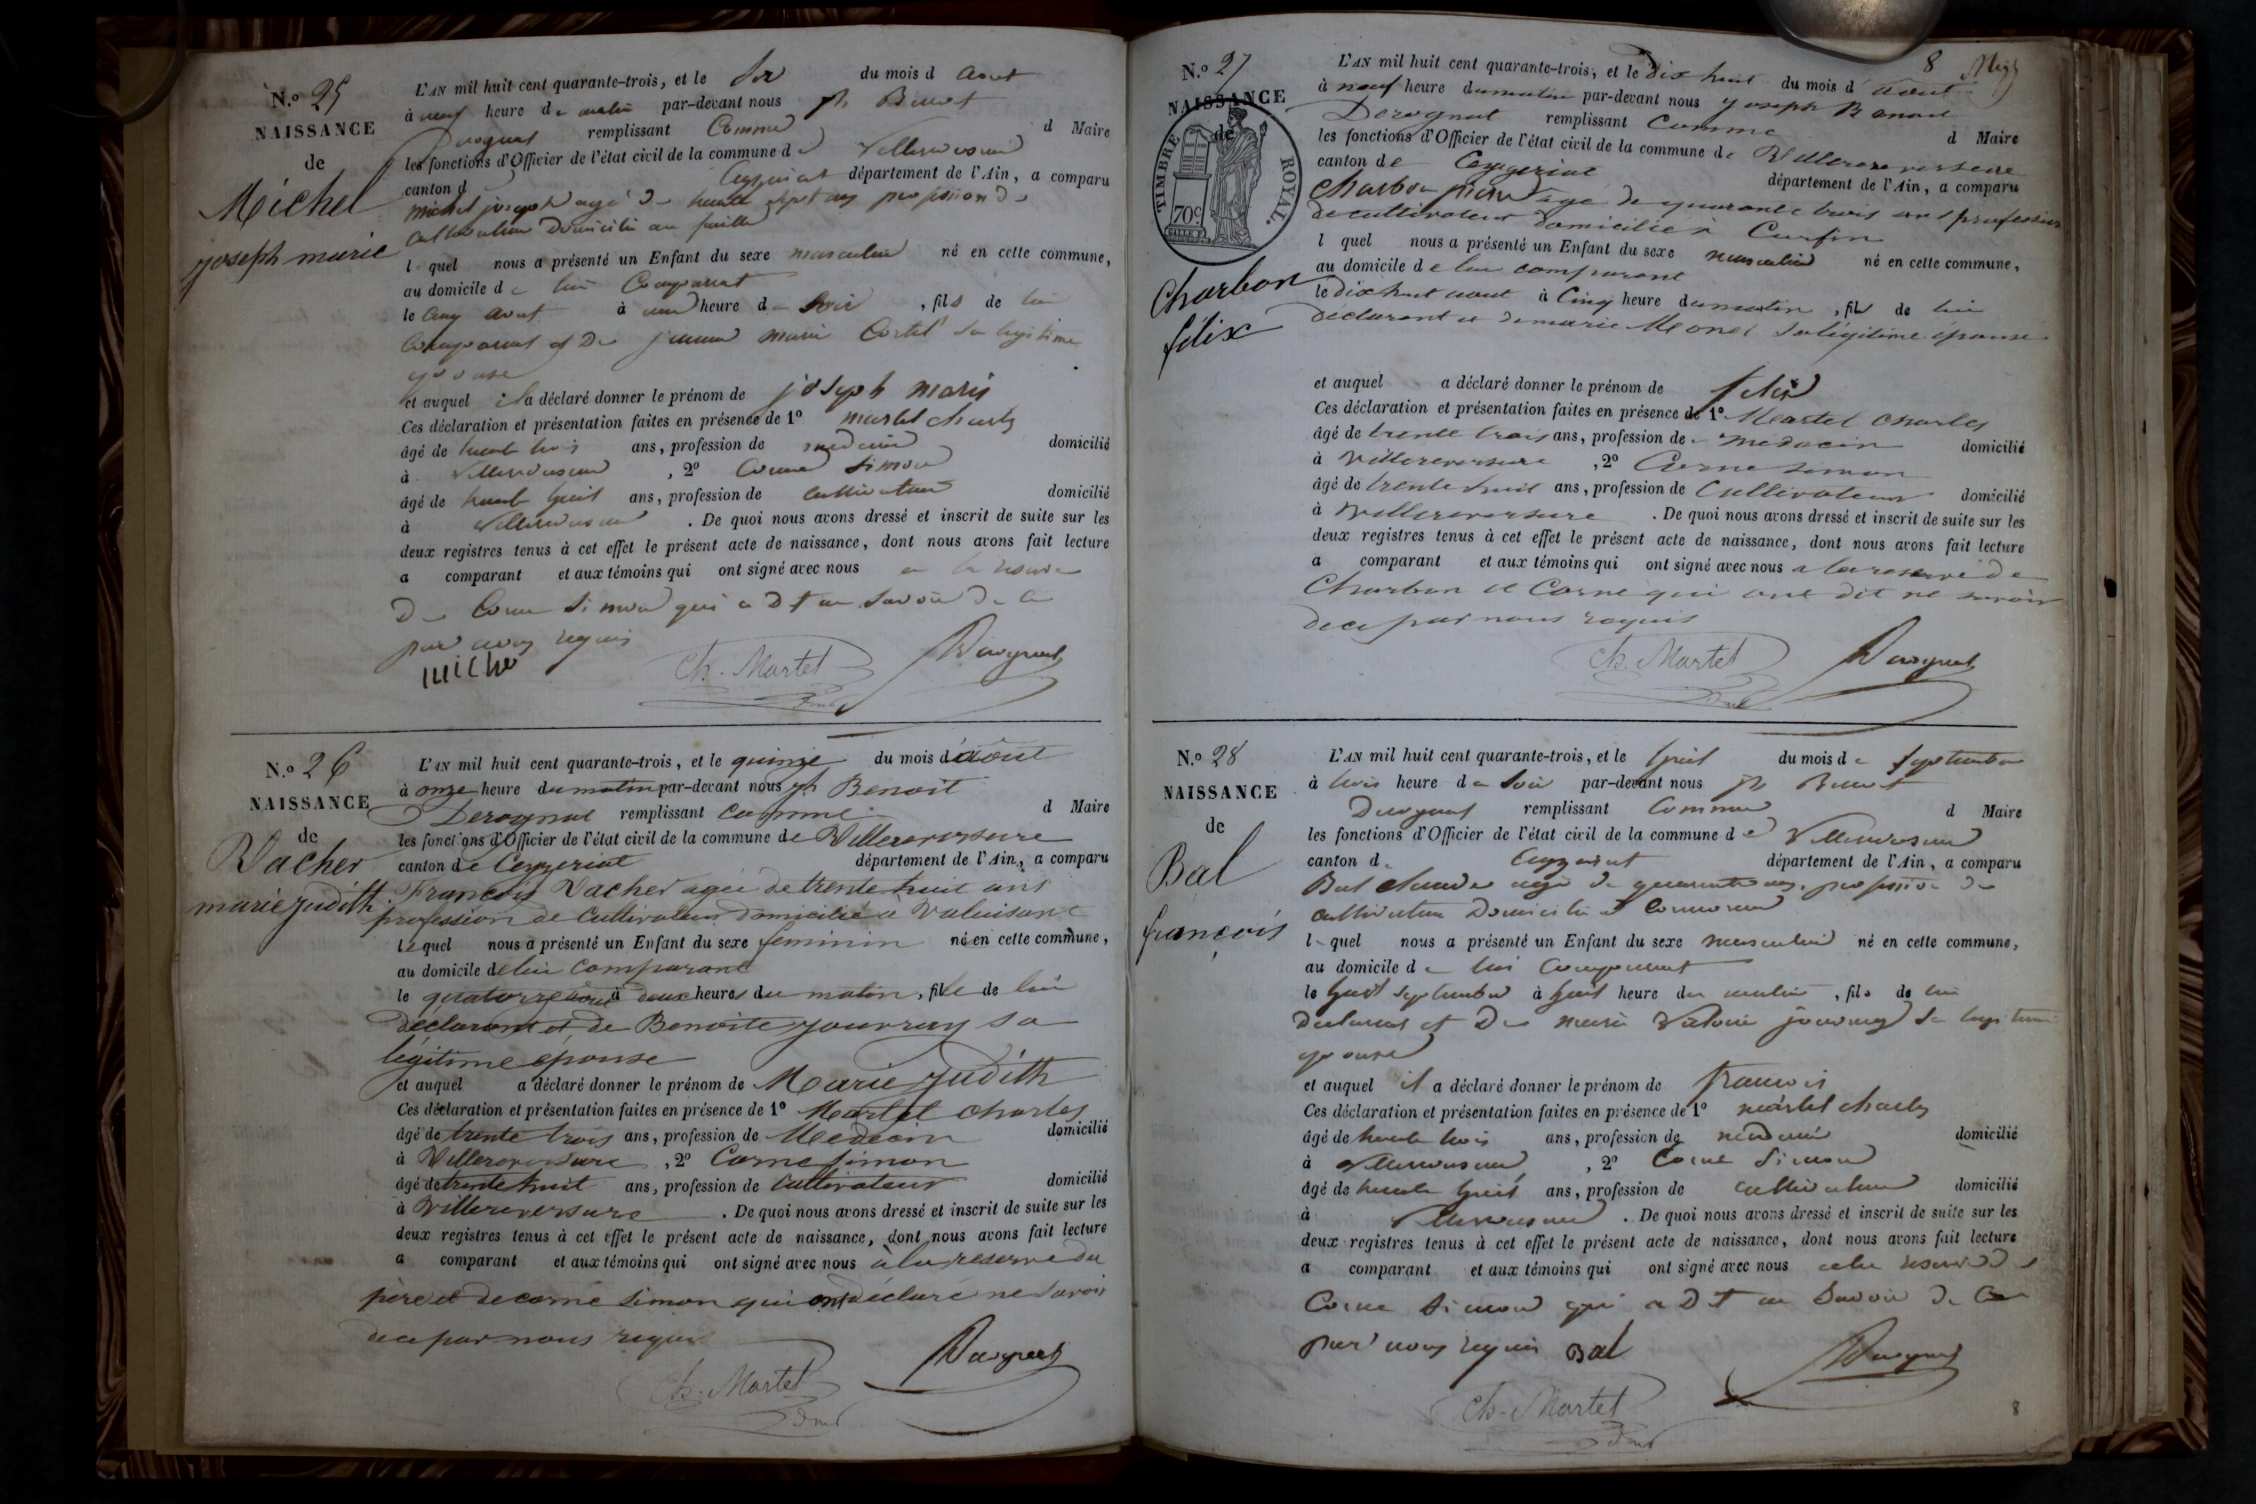 N.º 25
NAISSANCE
de
Michel
joseph marie
L'AN mil huit cent quarante-trois, et le Six du mois d aout
à neuf heure de matin par-devant nous jh Benoit
Derognat remplissant Comme d Maire
les fonctions d'Officier de l'état civil de la commune de Villereversure
canton d Ceyzeriat département de l'Ain, a comparu
michel joseph agé de trente sept ans profession de
cultivateur Domicilié au
l quel nous a présenté un Enfant du sexe masculin né en cette commune,
au domicile de lui Comparant
le cinq aout à une heure de Soir, fils de lui
Comparant et De jeanne marie Sa legitime
epouse
et auquel il a déclaré donner le prénom de joseph marie
Ces déclaration et présentation faites en présence de 1º martel charles
âgé de trente trois ans, profession de medecin domicilié
à Villereversure, 2º Corne Simon
âgé de trente huit ans, profession de cultivateur domicilié
à Villereversure. De quoi nous avons dressé et inscrit de suite sur les
deux registres tenus à cet effet le présent acte de naissance, dont nous avons fait lecture
a comparant et aux témoins qui ont signé avec nous a la reserve
De Corne Simon qui a Dit ne Savoir De ce
par nous requis
michel Ch. Martel Derognat
N.º 26
NAISSANCE
de
Vacher
marie judith
L'AN mil huit cent quarante-trois, et le quinze du mois d'août
à onze heure du matin par-devant nous jh Benoit
Derognat remplissant comme d Maire
les fonctions d'Officier de l'état civil de la commune de Villereversure
canton de Ceyzeriat département de l'Ain, a comparu
François Vacher agée de trente huit ans
profession de Cultivateur domicilié à Valuisant
le quel nous a présenté un Enfant du sexe feminin né en cette commune,
au domicile de lui comparant
le quatorze aout à deux heures du matin, fille de lui
declarant et de Benoite jouvray sa
légitime épouse
et auquel a déclaré donner le prénom de Marie judith
Ces déclaration et présentation faites en présence de 1º Martel Charles
âgé de trente trois ans, profession de Medecin domicilié
à Villereversure, 2º Corne Simon
âgé de trente huit ans, profession de Cultivateur domicilié
à Villereversure. De quoi nous avons dressé et inscrit de suite sur les
deux registres tenus à cet effet le présent acte de naissance, dont nous avons fait lecture
a comparant et aux témoins qui ont signé avec nous à la reserve du
père et de corne Simon qui ont déclaré ne savoir
de ce par nous requis
Ch. Martel Derognat
8
N.º 27
NAISSANCE
de
TIMBRE ROYAL.
70 c
Charbon
félix
L'AN mil huit cent quarante-trois, et le dix huit du mois d'aout
à neuf heure du matin par-devant nous joseph Benoit
Derognat remplissant Comme d Maire
les fonctions d'Officier de l'état civil de la commune de Villereversure
canton de Ceyzeriat département de l'Ain, a comparu
Charbon pierre age de quarante trois ans profession
de cultivateur domicilié à
l quel nous a présenté un Enfant du sexe masculin né en cette commune,
au domicile de lui comparant
le dix huit aout à Cinq heure du matin, fils de lui
declarant et de marie Sa légitime épouse
et auquel a déclaré donner le prénom de felix
Ces déclaration et présentation faites en présence de 1º Martel Charles
âgé de trente trois ans, profession de medecin domicilié
à Villereversure, 2º Corne simon
âgé de trente huit ans, profession de Cultivateur domicilié
à Villereversure. De quoi nous avons dressé et inscrit de suite sur les
deux registres tenus à cet effet le présent acte de naissance, dont nous avons fait lecture
a comparant et aux témoins qui ont signé avec nous a la reserve de
Charbon et Corne qui ont dit ne savoir
de ce par nous requis
Ch. Martel Derognat
N.º 28
NAISSANCE
de
Bal
françois
L'AN mil huit cent quarante-trois, et le huit du mois de septembre
à trois heure de Soir par-devant nous jh Benoit
Derognat remplissant Comme d Maire
les fonctions d'Officier de l'état civil de la commune de Villereversure
canton de Ceyzeriat département de l'Ain, a comparu
Bal claude agé de quarante ans, profession de
cultivateur Domicilié a
le quel nous a présenté un Enfant du sexe masculin né en cette commune,
au domicile de lui Comparant
le huit septembre à huit heure du matin, fils de lui
declarant et De marie jouvray Sa legitime
epouse
et auquel il a déclaré donner le prénom de francois
Ces déclaration et présentation faites en présence de 1º martel charles
âgé de trente trois ans, profession de medecin domicilié
à Villereversure, 2º Corne Simon
âgé de trente huit ans, profession de cultivateur domicilié
à Villereversure. De quoi nous avons dressé et inscrit de suite sur les
deux registres tenus à cet effet le présent acte de naissance, dont nous avons fait lecture
a comparant et aux témoins qui ont signé avec nous a la reserve de
Corne Simon qui a Dit ne Savoir De ce
par nous requis Bal Derognat
Ch. Martel
8